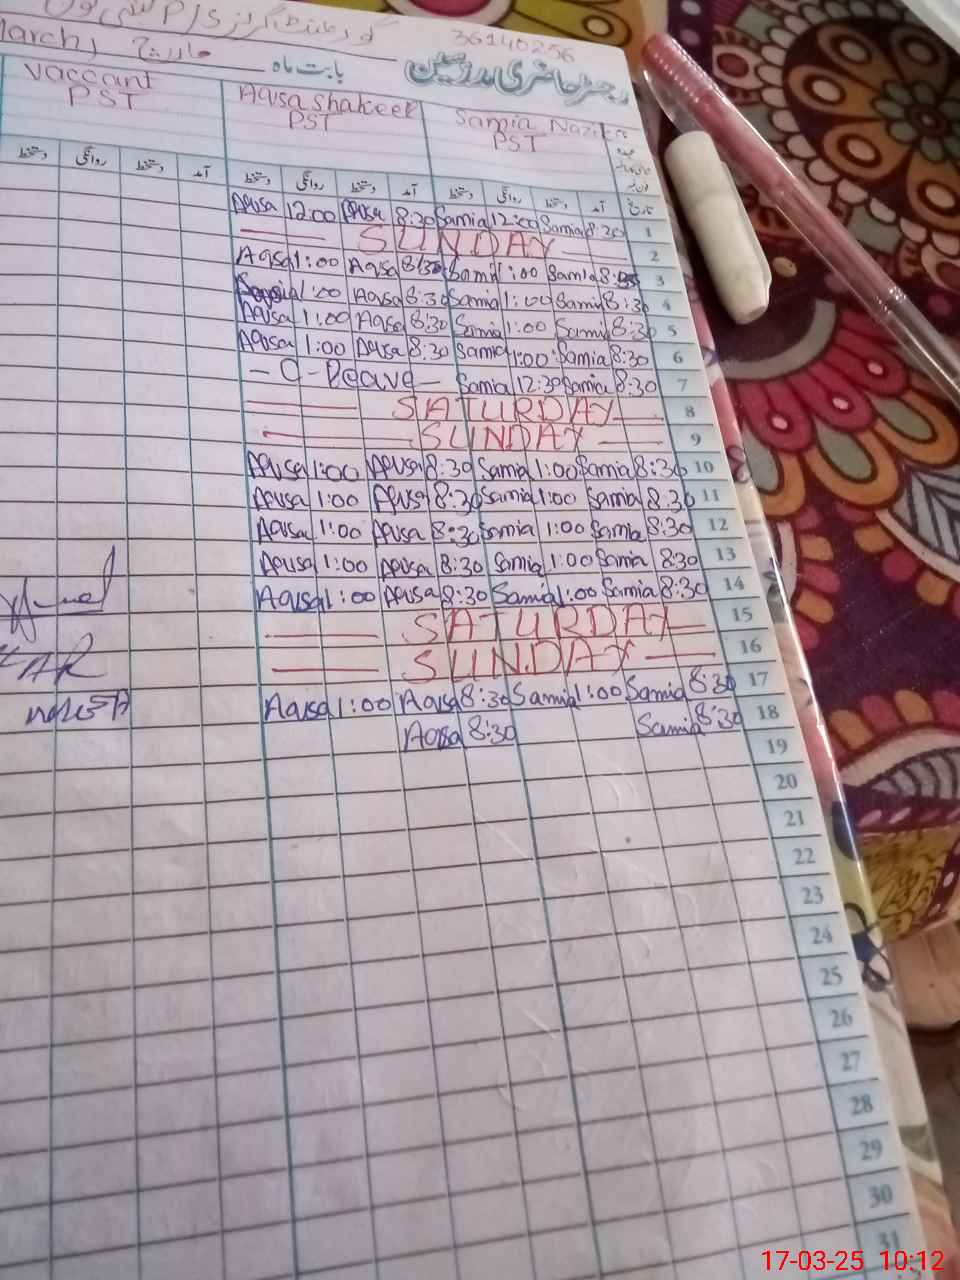 گورنمنٹ گرلز P/S
36140256
March, مارچ بابت ماہ رجسٹر حاضری مدرسین
vaccant Aqsa shakeel Samia Nazik
PST PST PST
دستخط روانگی دستخط آمد دستخط روانگی دستخط آمد دستخط روانگی دستخط آمد تاریخ
Aqsa 12:00 Aqsa 8:30 Samia 12:00 Samia 8:30 1
SUNDAY 2
Aqsa 1:00 Aqsa 8:30 Samia 1:00 Samia 3
1:00 Aqsa 8:30 Samia 1:00 Samia 8:30 4
Aqsa 1:00 Aqsa 8:30 Samia 1:00 Samia 8:30 5
Aqsa 1:00 Aqsa 8:30 Samia 1:00 Samia 8:30 6
— C-Leave — Samia 12:30 Samia 8:30 7
SATURDAY 8
SUNDAY 9
Aqsa 1:00 Aqsa 8:30 Samia 1:00 Samia 8:30 10
Aqsa 1:00 Aqsa 8:30 Samia 1:00 Samia 8:30 11
Aqsa 1:00 Aqsa 8:30 Samia 1:00 Samia 8:30 12
Aqsa 1:00 Aqsa 8:30 Samia 1:00 Samia 8:30 13
Aqsa 1:00 Aqsa 8:30 Samia 1:00 Samia 8:30 14
SATURDAY 15
SUNDAY 16
Aqsa 1:00 Aqsa 8:30 Samia 1:00 Samia 8:30 17
Aqsa 8:30 Samia 8:30 18
19
20
21
22
23
24
25
26
27
28
29
30
31
17-03-25 10:12